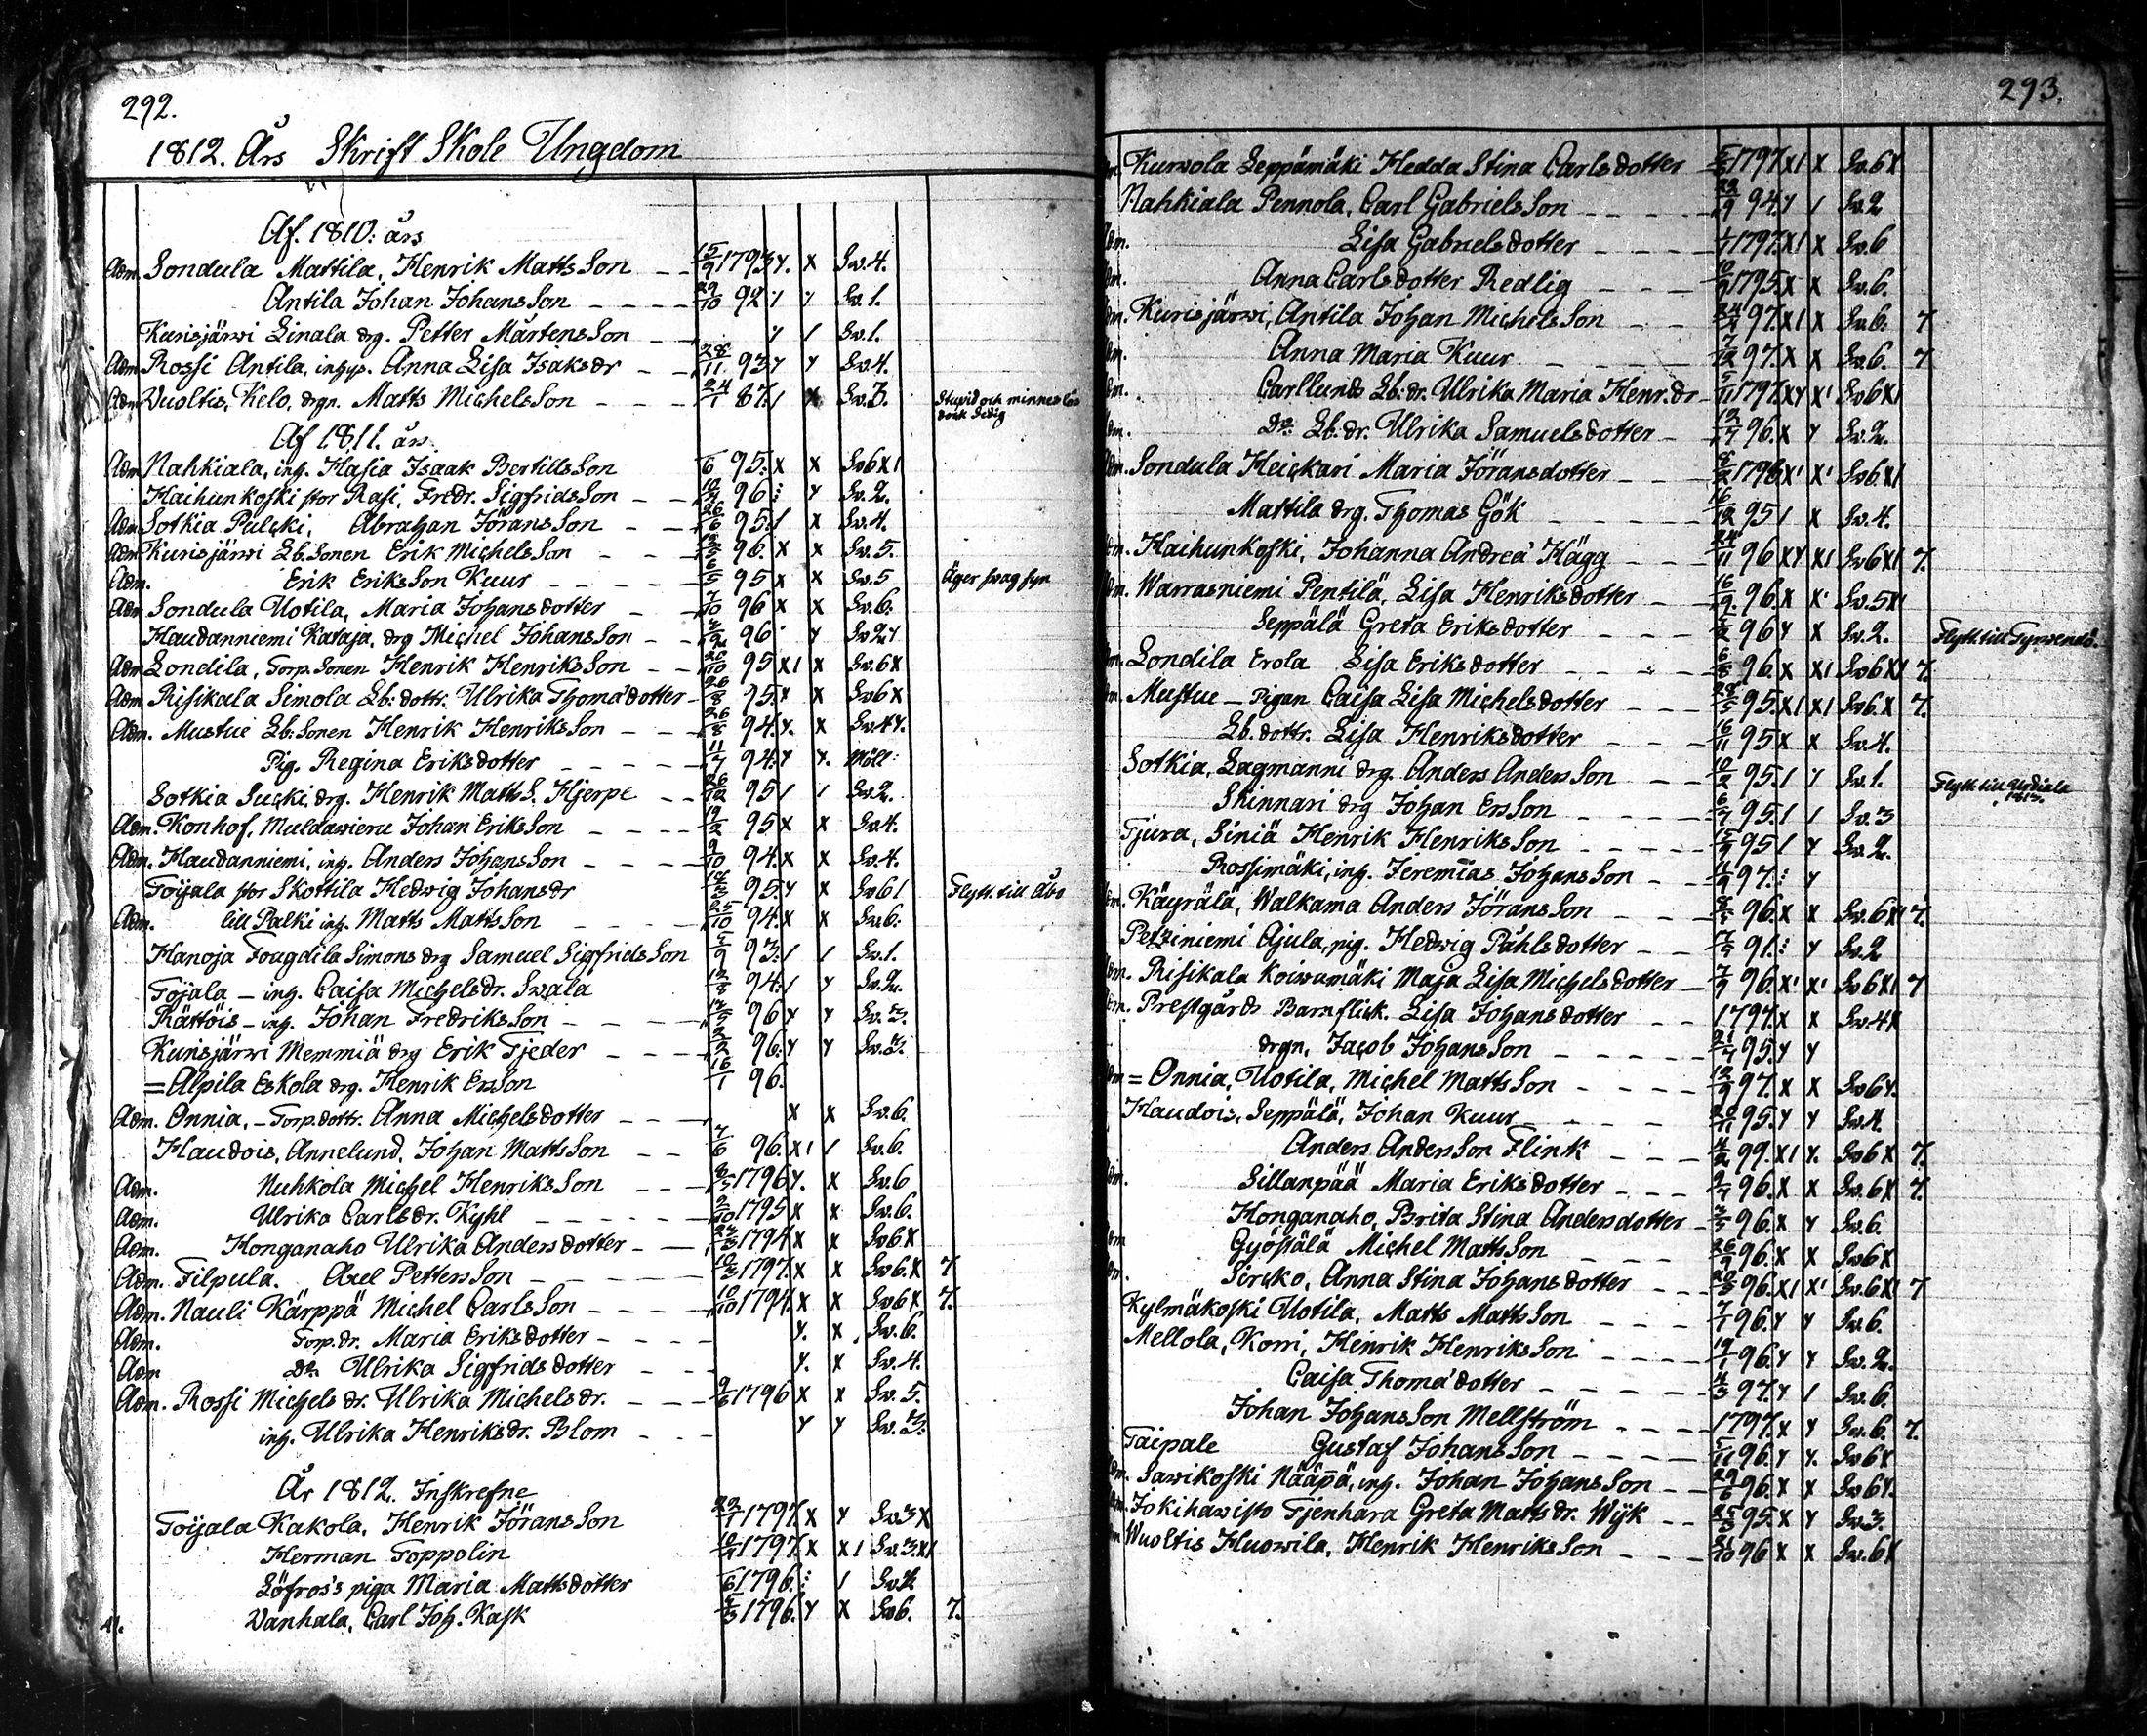 292.
1812. Års Skrift Skole Ungdom
Af. 1810: års
Adm. Sondula Mattila, Henrik Matts Son 15/9 1793 y. x Sv. 4.
Antila Johan Johans Son 29/10 92 y y Sv. 1.
Kurisjärwi Linala drg. Petter Mårtens Son y / Sv. 1.
Adm Rossi Antila, inhys. Anna Lisa Isaksdr 28/11 93 y y Sv. 4.
Adm Vuoltis, Kelo, drgn. Matts Michels Son 24/1 87. / x Sv. 3. Stupid och minneslös
dock Sedig
Af 1811. års
Adm Nahkiala, inh. Hasia Isaak Bertills Son /6 95. x x Sv 6 x 1
Haihunkoski stor Rasi, Fredr. Sigfrids Son 96 y Sv. 2.
Adm Sotkia Pulcki, Abraham Jörans Son 26/6 95. / x Sv. 4.
Adm Kurisjärwi Lb. Sonen Erik Michels Son 96. x x Sv. 5.
Adm. Erik Eriks Son Kuur 6/5 95 x x Sv. 5 Äger svag syn
Adm Sondula Uotila, Maria Johans dotter 7/10 96 x x Sv. 6.
Haudanniemi Kataja, drg Michel Johans Son 96 y Sv 2 y
Adm Londila, Torp. Sonen Henrik Henriks Son 95 x 1 x Sv. 6 x
Adm Risikala Simola Lb: dottr. Ulrika Thomä dotter 26/8 95. y x Sv 6 x
Adm. Mustue Lb: Sonen Henrik Henriks Son 94. y. x Sv. 4 y.
Pig. Regina Eriks dotter 11/7 94. y y. Möll:
Sotkia Sucki, drg. Henrik Matts S. Hjerpe 26/12 95 / / Sv 2.
Adm. Konhof, Muldawieru Johan Eriks Son 19/2 95 x x Sv 4.
Adm. Haudanniemi, inh. Anders Johans Son 9/10 94. x x Sv. 4.
Toijala stor Skottila Hedwig Johansdr 95. y x Sv 6 1 Flytt. till Åbo
Adm. lill Palki inh. Matts Matts Son 25/10 94. x x Sv. 6:
Hanoja Fougdila Simons drg Samuel Sigfrids Son 5/9 93. / / Sv. 1.
Toijala – inh. Caisa Michelsdr. Swala 94. / y Sv. 2.
Rättöis – inh. Johan Fredriks Son 96 y y Sv. 3.
Kurisjärwi Memmiä drg Erik Tjeder 96. y y Sv. 3.
= Alpila Eskola drg. Henrik Ersson 16/1 96.
Adm. Onnia, – Torp. dottr. Anna Michels dotter x x Sv. 6.
Haudois, Annelund, Johan Matts Son 7/6 96. x 1 / Sv. 6.
Adm. Nuhkola Michel Henriks Son 8/5 1796 y. x Sv. 6
Adm. Ulrika Carlsdr. Kyhl 2/10 1795 x x Sv. 6.
Adm. Honganaho Ulrika Anders dotter 1794 x x Sv 6 x
Adm. Filpula. Axel Petters Son 10/3 1797. x x Sv 6. x 7
Adm. Nauli Kärppä Michel Carls Son 10/10 1794. x x Sv 6 x 7.
Adm. Torp. dr. Maria Eriks dotter y. x Sv. 6.
Adm Do: Ulrika Sigfrids dotter y. x Sv. 4.
Adm. Rossi Michels dr. Ulrika Michels dr. 1796 x x Sv. 5.
inh. Ulrika Henriks dr. Blom y y Sv. 3.
År 1812. Inskrefne
Toijala Kakola, Henrik Jörans Son 22/1 1797. x y Sv 3 x
Herman Toppolin 1797 x x 1 Sv. 3. x 1
Löfros's piga Maria Matts dotter /6 1796. / Sv 2
Wanhala, Carl Joh. Kask 1796. y x Sv 6. 7.
293.
Kurvola Seppämäki Hedda Stina Carls dotter 1797 x 1 x Sv. 6 x
Nahkiala Pennola, Carl Gabriels Son 94. y / Sv. 2
Adm. Lisa Gabriels dotter 1797. x 1 x Sv. 6
Anna Carls dotter Redlig 1795. x x Sv. 6.
Kurisjärwi, Antila Johan Michels Son 97. x 1 x Sv. 6. 7
Anna Maria Kuur 7/12 97. x x Sv. 6. 7
Carllunds Lb: dr. Ulrika Maria Henr. dr 1797. x y x 1 Sv 6 x 1
Do: Lb. dr. Ulrika Samuels dotter 96. x y Sv. 2.
Sondula Heickari Maria Jöransdotter x 1 x 1 Sv 6. x 1
Mattila drg. Thomas Gök 16/12 95 / x Sv. 4.
Haihunkoski, Johanna Andrea Hägg 24/11 96 x y x 1 Sv 6 x 1 7.
Warrasniemi Pentilä, Lisa Henriks dotter 16/9 96. x x 1 Sv. 5 x 1
Seppälä Greta Eriks dotter 96 y x Sv. 2. Flytt. till Tyrwendö.
Londila Erola Lisa Eriks dotter 96. x x 1 Sv 6 x 1 7.
Mustue – Pigan Caisa Lisa Michels dotter 95. x 1 x 1 Sv 6. x 7.
Lb. dottr. Lisa Henriks dotter 16/11 95 x x Sv. 4.
Sotkia, Lagmanni drg. Anders Anders Son 10/2 95. / y Sv. 1. Flytt. till Urdiala
1813.
Skinnari drg Johan Ers Son 95. / / Sv. 3
Tjura, Siniä Henrik Henriks Son 95 / y Sv. 2.
Rossimäki, inh. Jeremias Johans Son 11/9 97. y
Käyrälä, Walkama Anders Jörans Son 96. x x Sv. 6 x 1 7.
Petziniemi Ajula, pig. Hedwig Påhls dotter 91. y Sv. 2
Risikala Koiwumäki Maja Lisa Michels dotter 96. x 1 x 1 Sv 6 x 1 7
Prestgårds Barnflick. Lisa Johans dotter 1797. x x Sv. 4 x
drgn. Jacob Johans Son 95. y y
= Onnia, Uotila, Michel Matts Son 12/9 97. x x Sv 6 y.
Haudois, Seppälä, Johan Kuur 20/11 95. y y Sv. 4.
Anders Anders Son Flink 4/2 99. x 1 y. Sv 6 x 7.
Sillanpää Maria Eriks dotter 96. x x Sv. 6 x 7.
Honganaho, Brita Stina Anders dotter 96. x y Sv. 6.
Gyöstälä Michel Matts Son 26/9 96. x x Sv 6 x
Sircko, Anna Stina Johans dotter 96. x 1 x 1 Sv. 6 x 1 7
Kylmäkoski Uotila, Matts Matts Son 7/1 96. y y Sv. 6.
Mellola, Korri, Henrik Henriks Son 19/1 96. y y Sv. 2.
Caisa Thomä dotter 4/3 97. y / Sv. 6.
Johan Johans Son Mellström 1797. x y Sv. 6. 7.
Taipale Gustaf Johans Son 5/11 96. y y. Sv 6 x
Sawikoski Nääpä, inh. Johan Johans Son 29/6 96. x x Sv 6 y.
Jokihawisto Tjenhara Greta Matts dr. Wijk 25/3 95. x y Sv. 3.
Wuoltis Huowila, Henrik Henriks Son 21/10 96 x x Sv. 6 x